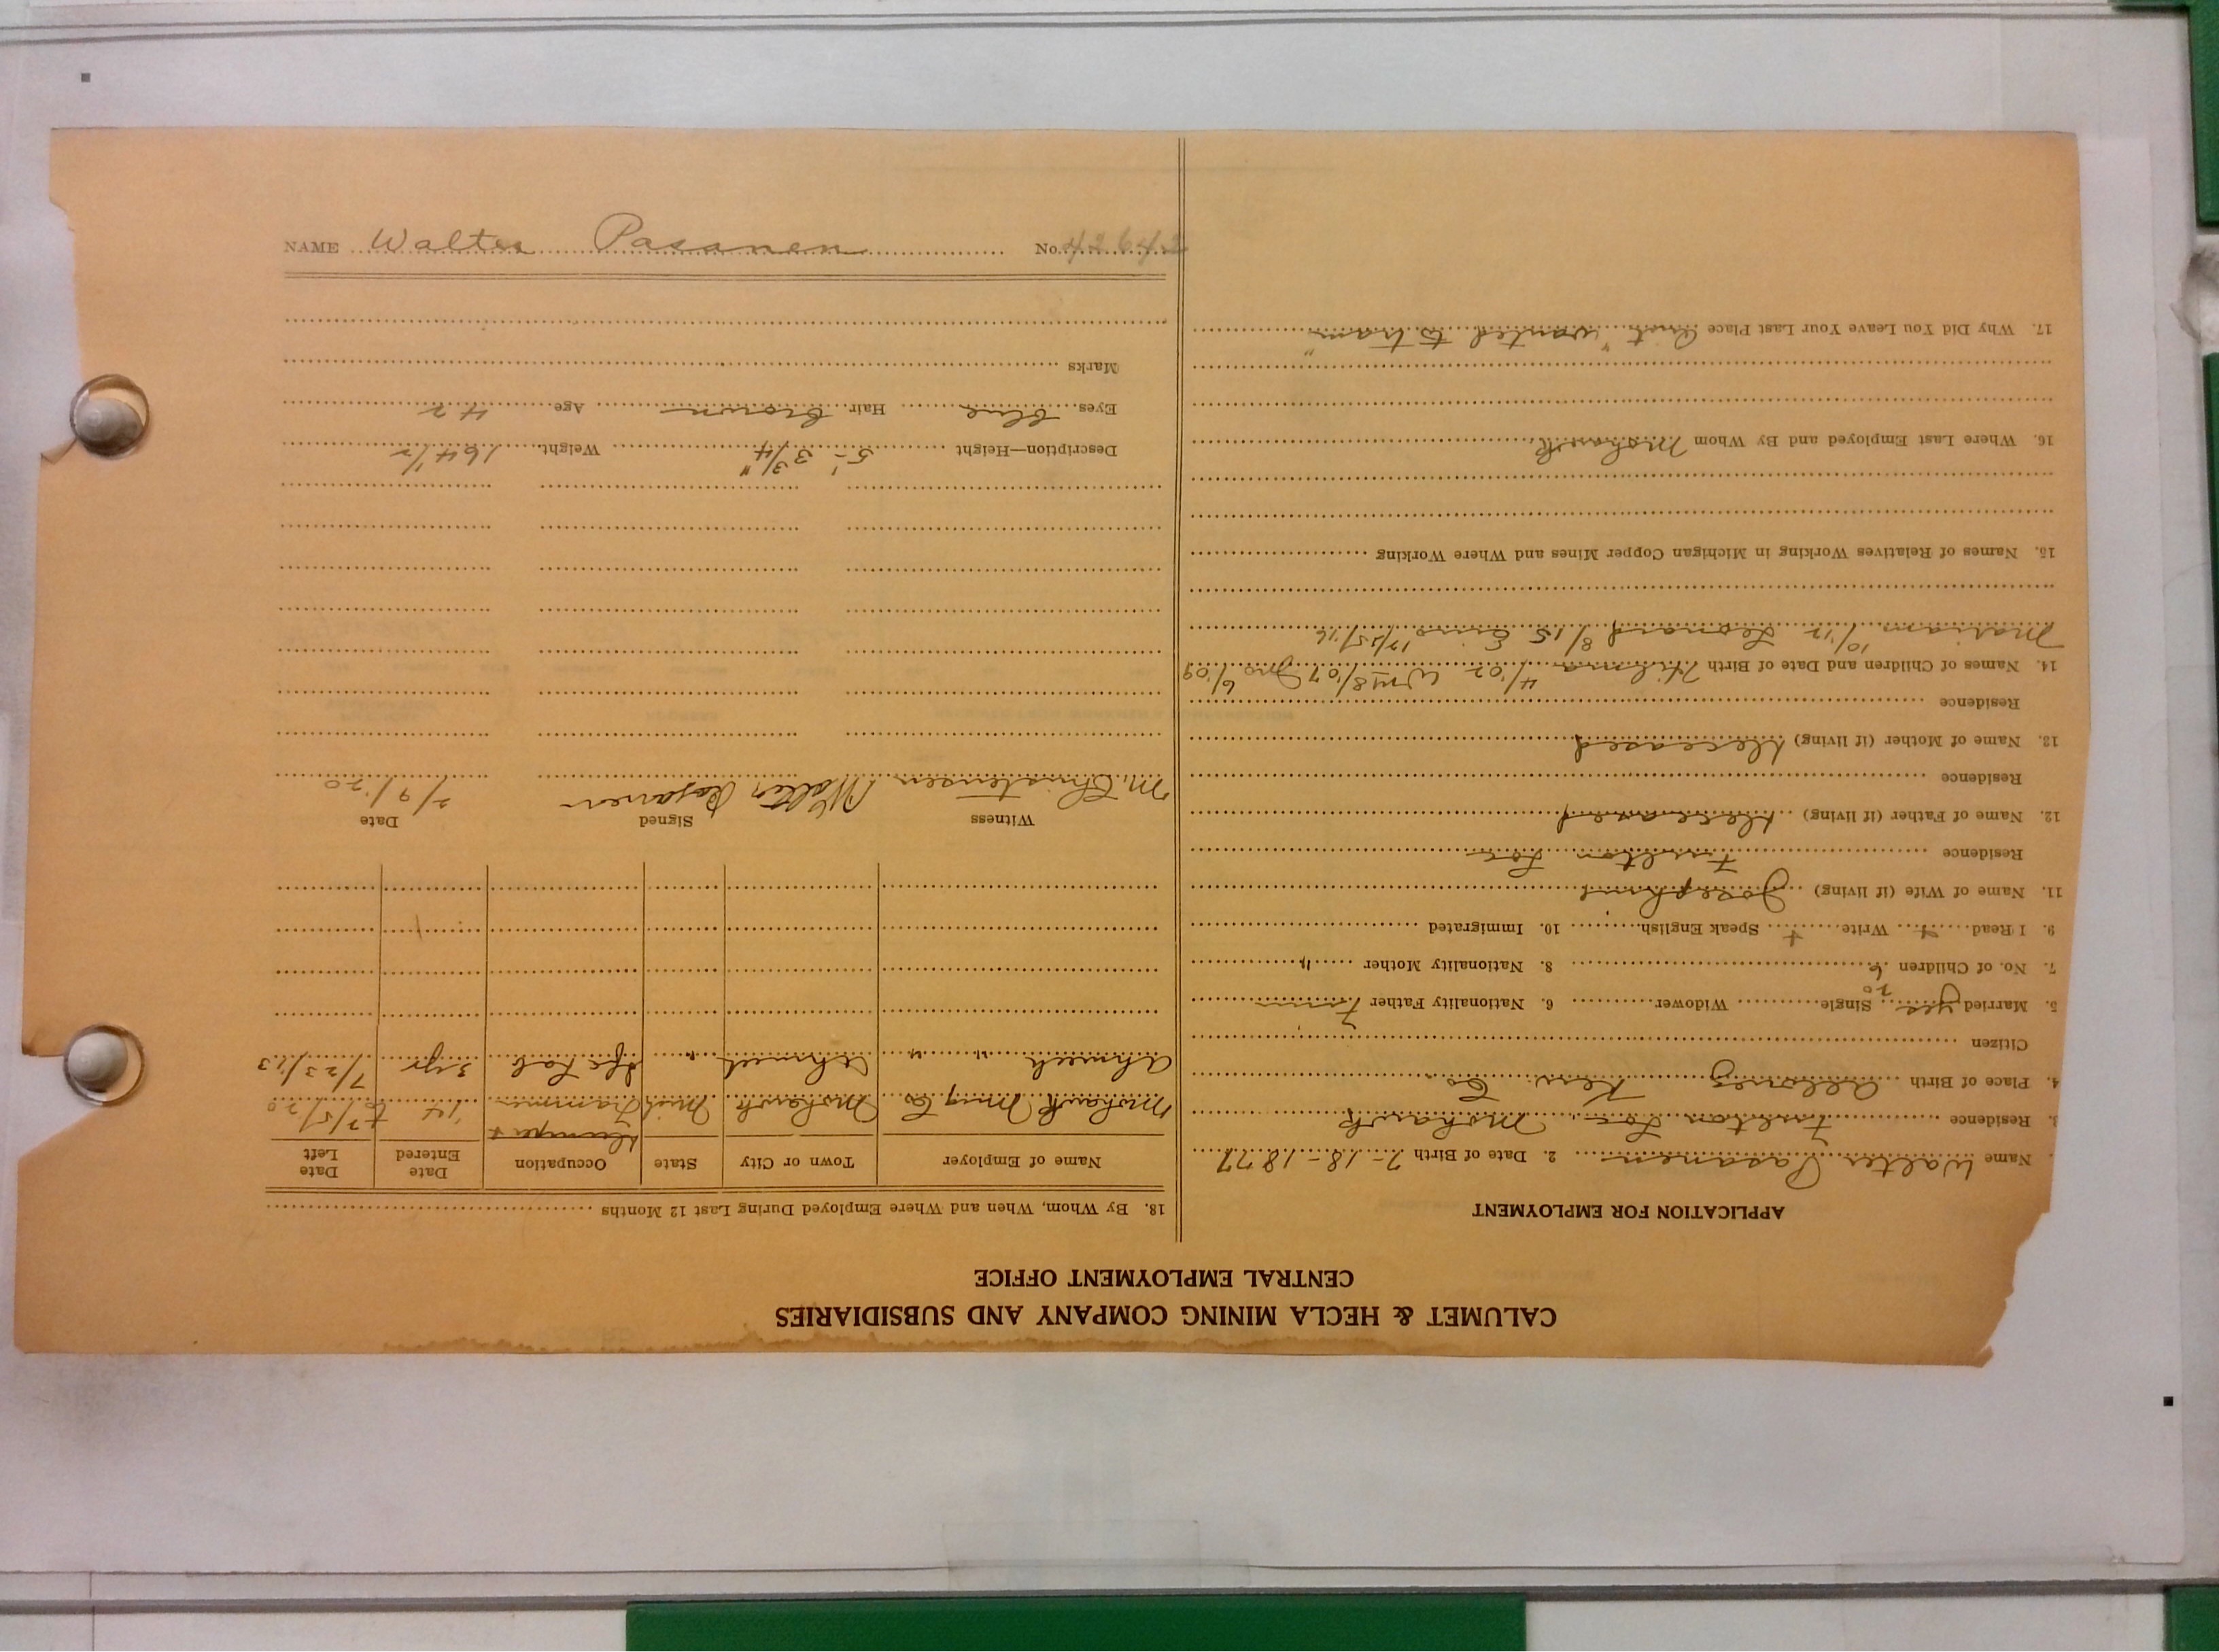 CALUMET & HECLA MINING COMPANY AND SUBSIDIARIES
CENTRAL EMPLOYMENT OFFICE
APPLICATION FOR EMPLOYMENT
Name Walter Pasanen 2. Date of Birth 7-18-1877
3. Residence Fulton Loc. Mohawk
4. Place of Birth Allouez Kew. Co.
Citizen
5. Married yes 20 Single Widower 6. Nationality Father Finn
7. No. of Children 6 8. Nationality Mother "
9. I Read + Write + Speak English 10. Immigrated
11. Name of Wife (if living) Josephine
Residence Fulton Loc
12. Name of Father (if living) deceased
Residence
13. Name of Mother (if living) deceased
Residence
14. Names of Children and Date of Birth Hilma 4/02 Wm 8/07 Jno 6/09
Mariam 10/12 Leonard 8/15 Eino 12/25/16
15. Names of Relatives Working in Michigan Copper Mines and Where Working
16. Where Last Employed and By Whom Mohawk
17. Why Did You Leave Your Last Place Quit "wanted to tram"
18. By Whom, When and Where Employed During Last 12 Months
Name of Employer Town or City State Occupation Date Entered Date Left
Mohawk Mng Co Mohawk Mich Trammer
Ahmeek " " Ahmeek " 3 yr 7/23/13
Witness Signed Date
M. Christensen Walter Pasanen 2/9/20
Description—Height 5'-3 3/4" Weight 164 1/2
Eyes blue Hair brown Age 42
Marks
NAME Walter Pasanen No. 42642